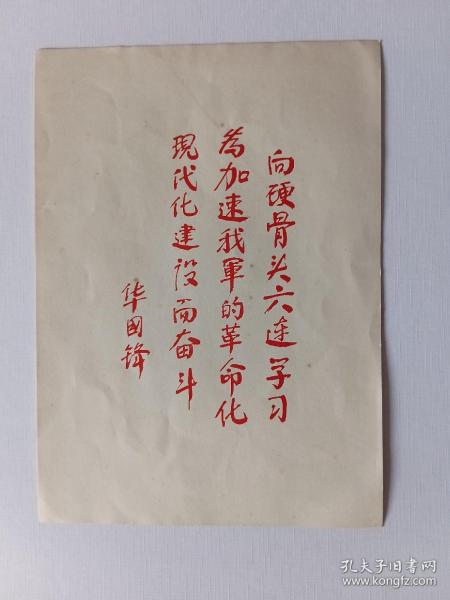 向硬骨头六连学习
为加速我軍的革命化
現代化建设而奋斗
华國锋
孔夫子旧书网
www.kongfz.com